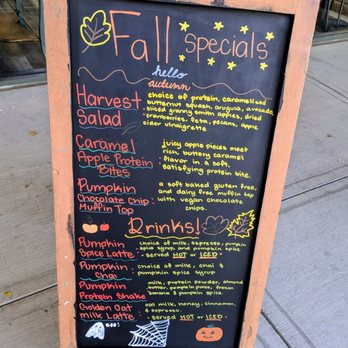 Fall specials
hello
autumn
Harvest
Salad
choice of protein, caramelized
butternut squash, arugula, avocado,
sliced granny smith apples, dried
cranberries, feta, pecans, apple
cider vinaigrette
Caramel
Apple Protein
Bites
juicy apple pieces meet
rich, buttery caramel
flavor in a soft,
satisfying protein bite.
Pumpkin
Chocolate Chip
Muffin Top
a soft baked gluten free,
and dairy free muffin top
with vegan chocolate
chips.
Drinks!
Pumpkin
Spice Latte
choice of milk, espresso, pumpkin
spice syrup, and pumpkin spice
• served HOT or ICED •
Pumpkin
Chai
choice of milk, chai &
pumpkin spice syrup
Pumpkin
Protein Shake
milk, protein powder, almond
butter, pumpkin puree, frozen
banana & pumpkin spice.
Golden Oat
Milk Latte
oat milk, honey, cinnamon,
& espresso
• served HOT or ICED •
BOO!